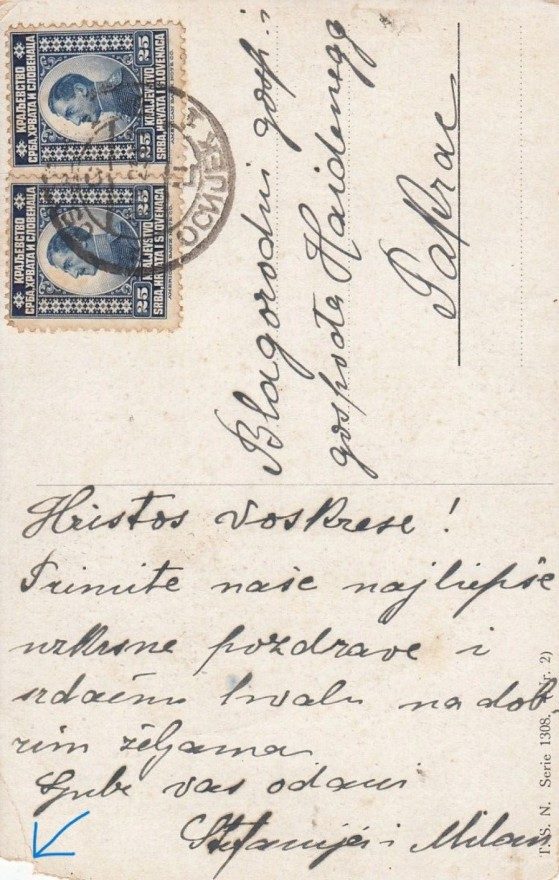 КРАЉЕВСТВО
СРБА, ХРВАТА И СЛОВЕНАЦА
25 25
KRALJEVSTVO
SRBA, HRVATA I SLOVENACA
КРАЉЕВСТВО
СРБА, ХРВАТА И СЛОВЕНАЦА
25 25
KRALJEVSTVO
SRBA, HRVATA I SLOVENACA
Blagorodni gosp. i
gospođa Haidenegg
Pakrac
Hristos voskrese!
Primite naše najljepše
uzkrsne pozdrave i
srdačnu hvalu na dob
rim željama
Ljube vas odani
Stefanija i Milan
T. S. N. Serie 1308. Nr. 2)